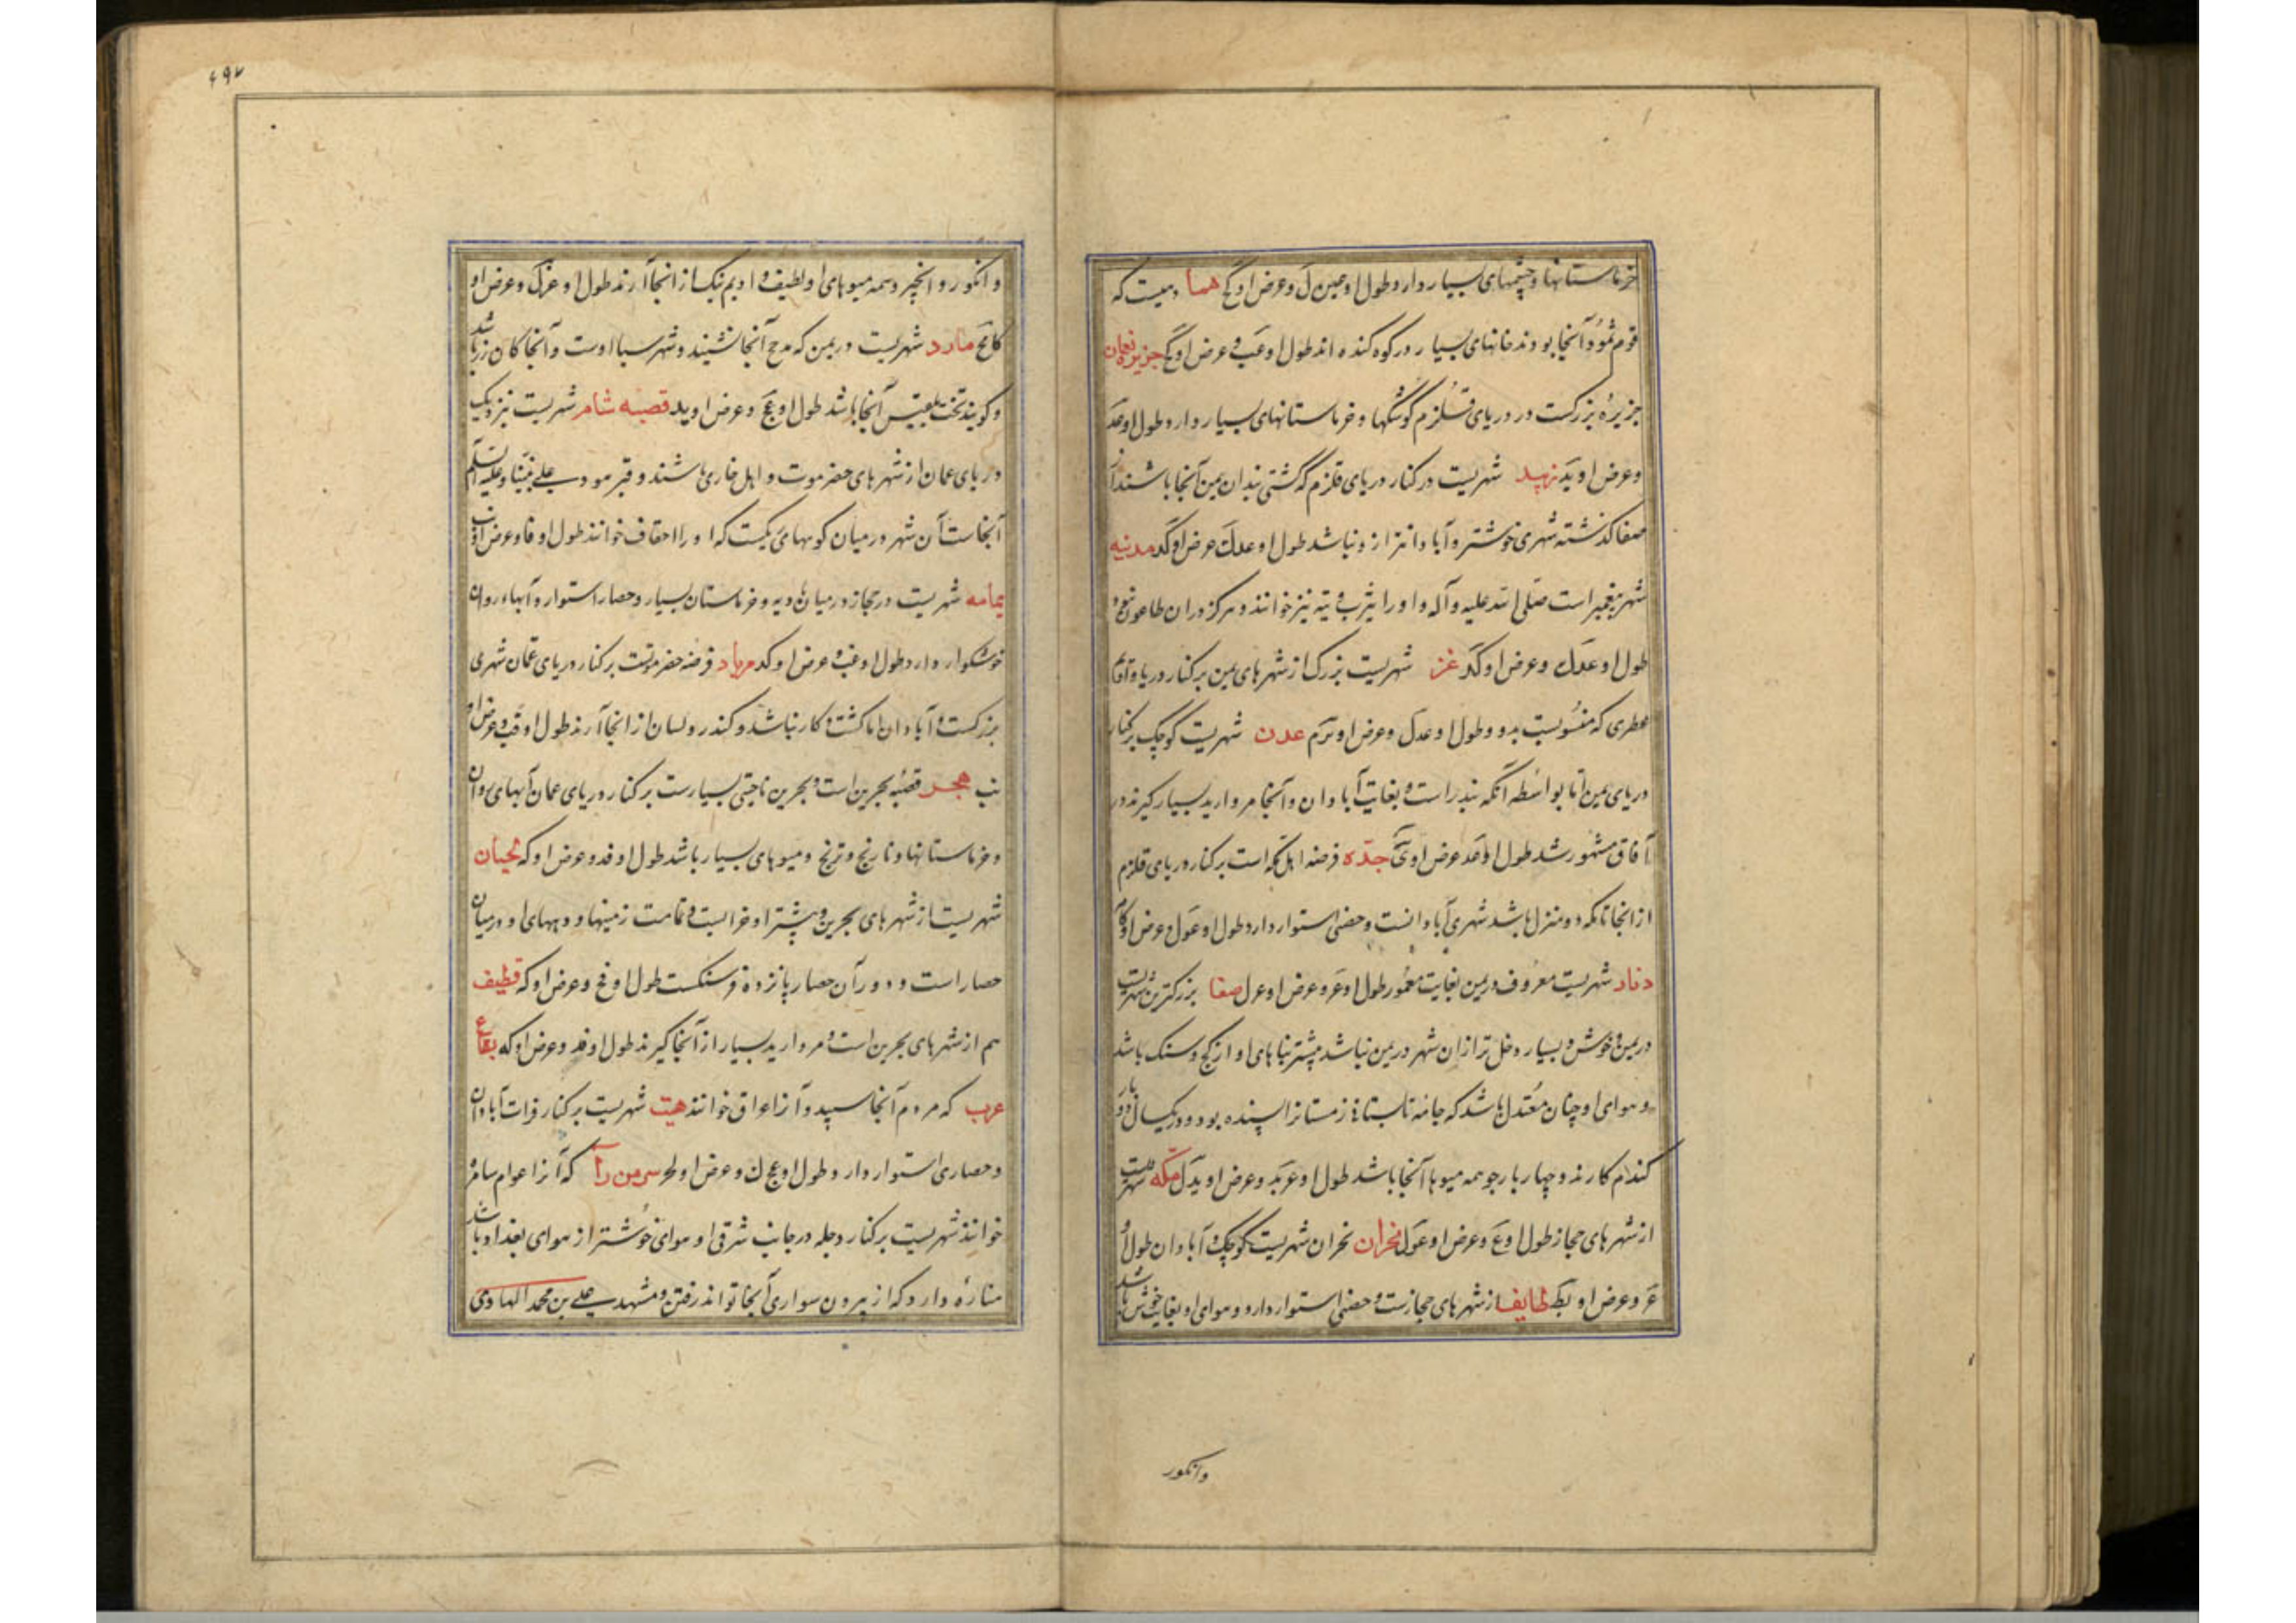 خرماستانها و چشمهای بسیار دارد طول او عین ل و عرض او کج همسا دهیست که
قوم ثمود آنجا بودند خانهای بسیار در کوه کنده اند طول او عب و عرض او کج جزیره نعمان
جزیرۀ بزرکست در دریای قلزم کوشکها و خرماستانهای بسیار دارد طول او عد
و عرض او ید زبید شهریست در کنار دریای قلزم که کشتی بندان یمن آنجا باشند از
صفا کذشته شهری خوشتر و آبادانتر ازو نباشد طول او عدک عرض او کد مدنیه
شهر پیغمبر است صلی الله علیه و آله و او را یثرب و تیه نیز خوانند و هرکز دران طاعون نبود
طول او عدک و عرض او کد عز شهریست بزرک از شهرهای یمن بر کنار دریا و اقام
عطری که منسوبست بدو و طول او عدل و عرض او ترم عدن شهریست کوچک بر کنار
دریای یمن اما بواسطه آنکه بندر است و بغایت آبادان و آنجا مروارید بسیار کیرند در
آفاق مشهور شد طول او عد عرض او یج جده فرضه اهل مکه است بر کنار دریای قلزم
از انجا تا مکه دو منزل باشد شهری آبادانست و حصنی استوار دارد طول او عول و عرض او کام
دناد شهریست معروف در یمن بغایت معمور طول او عر و عرض او عرل صفا بزرکترین شهریست
در یمن و خوش و بسیار دخل تر از ان شهر در یمن نباشد بیشتر بناهای او از کج و سنک باشد
و هوای او چنان معتدل باشد که جامه تابستان زمستانرا پسنده بود و در یکسال دو بار
کندم کارند و چهار بار جو همه میوها آنجا باشد طول او عر ید و عرض او یدل مکه شهریست
از شهرهای حجاز طول او عغ و عرض او عول نخران نخران شهریست کوچک و آبادان طول او
عر و عرض او بک طایف از شهرهای حجازست و حصنی استوار دارد و هوای او بغایت خوش باشد
وانکور
۴۹۷
و انکور و انجیر و همه میوهای او لطیف و ادیم نیک از انجا آرند طول او عزک و عرض او
کامح مارد شهریست در یمن که مدحج آنجا نشینند و شهر سبا اوست و آنجا کان زر باشد
و کویند تخت بلقیس آنجا باشد طول او عج و عرض او ید قصبه شامر شهریست نزدیک
دریای عمان از شهرهای حضرموت و اهل خاری باشند و قبر هود علی نبینا و علیه السلم
آنجاست آن شهر در میان کوههای ریکست که او را احقاف خوانند طول او فا و عرض او نب
یمامه شهریست در حجاز در میان بادیه و خرماستان بسیار و حصار استوار و آبهاء روان
خوشکوار دارد طول او فب و عرض او کد مرباد فرضه حضرموتست بر کنار دریای عمان شهری
بزرکست و آبادان اما کشت و کار نباشد و کندر و لسان از انجا آرند طول او قب و عرض او
نب هجر قصبۀ بحرین است و بحرین ناحیتی بسیارست بر کنار دریای عمان آبهای روان
و خرماستانها و نارنج و ترنج و میوهای بسیار باشد طول او فد و عرض او که لحیان
شهریست از شهرهای بحرین و بیشتر او خرابست و تمامت زمینها و دیههای او در میان
حصار است و دور آن حصار پانزده فرسنکست طول او فج و عرض او که قطیف
هم از شهرهای بحرین است و مروارید بسیار از آنجا کیرند طول او فد و عرض او که بقاع
عرب که مردم آنجا سپید و آنرا عراق خوانند هیت شهریست بر کنار فرات آبادان
و حصاری استوار دارد و طول او عج ک و عرض او لحر سرمن رآ که آنرا عوام سامره
خوانند شهریست بر کنار دجله در جانب شرقی او هوای خوشتر از هوای بغداد باشد
منارۀ دارد که از بیرون سواری آنجا تواند رفتن و مشهد علی بن محمد الهادی